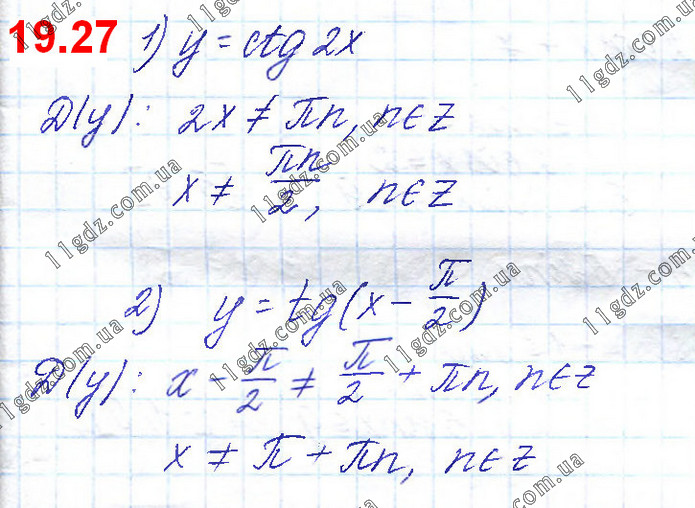 19.27 1) y = ctg 2x
D(y): 2x ≠ πn, n∈Z
x ≠ πn/2, n∈Z
2) y = tg(x - π/2)
D(y): x - π/2 ≠ π/2 + πn, n∈Z
x ≠ π + πn, n∈Z
11gdz.com.ua
11gdz.com.ua
11gdz.com.ua
11gdz.com.ua
11gdz.com.ua
11gdz.com.ua
11gdz.com.ua
11gdz.com.ua
11gdz.com.ua